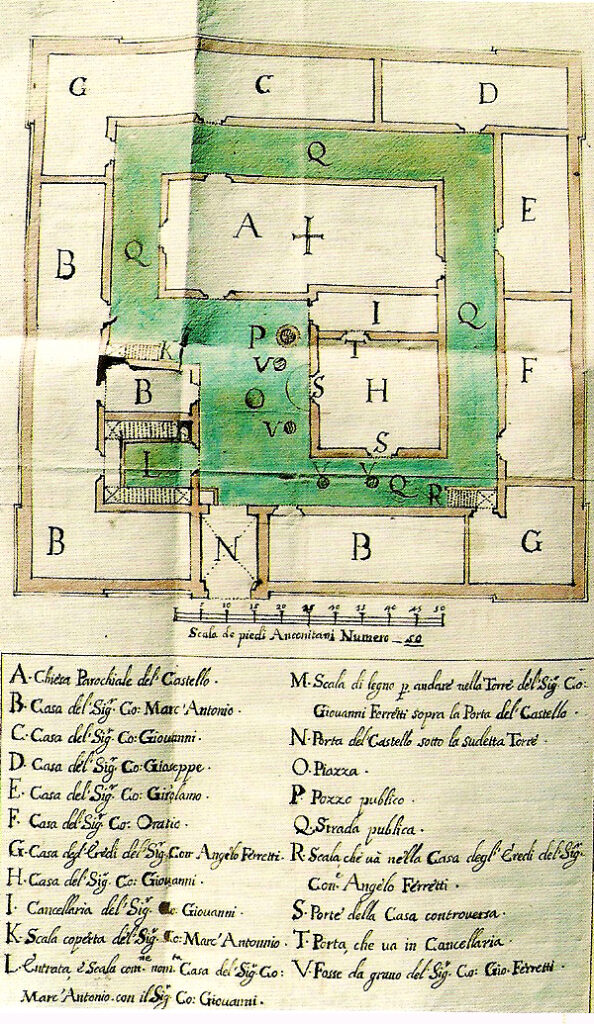 G
C
D
Q
A
E
B
Q
Q
I
P
K
V
T
F
B
S
H
O
V
S
L
V
V
Q
R
B
N
B
G
5 10 15 20 25 30 35 40 45 50
Scala de piedi Anconitani Numero 50
A. Chiesa Parochiale del Castello.
B. Casa del Sigr. Co: Marc'Antonio.
C. Casa del Sigr. Co: Giovanni.
D. Casa del Sigr. Co: Gioseppe.
E. Casa del Sigr. Co: Girolamo.
F. Casa del Sigr. Co: Oratio.
G. Casa degl'Eredi del Sigr. Con: Angelo Ferretti.
H. Casa del Sigr. Co: Giovanni.
I. Cancellaria del Sigr. Co: Giovanni.
K. Scala coperta del Sigr. Co: Marc'Antonnio.
L. Entrata e Scala Casa del Sigr. Co:
Marc'Antonio con il Sigr. Co: Giovanni.
M. Scala di legno p. andare nella Torre del Sigr. Co:
Giovanni Ferretti sopra la Porta del Castello.
N. Porta del Castello sotto la sudetta Torre.
O. Piazza.
P. Pozzo publico.
Q. Strada publica.
R. Scala, che và nella Casa degl'Eredi del Sigr.
Con: Angelo Ferretti.
S. Porte della Casa controversa.
T. Porta, che va in Cancellaria.
V. Fosse da grano del Sigr. Co: Gio: Ferretti.